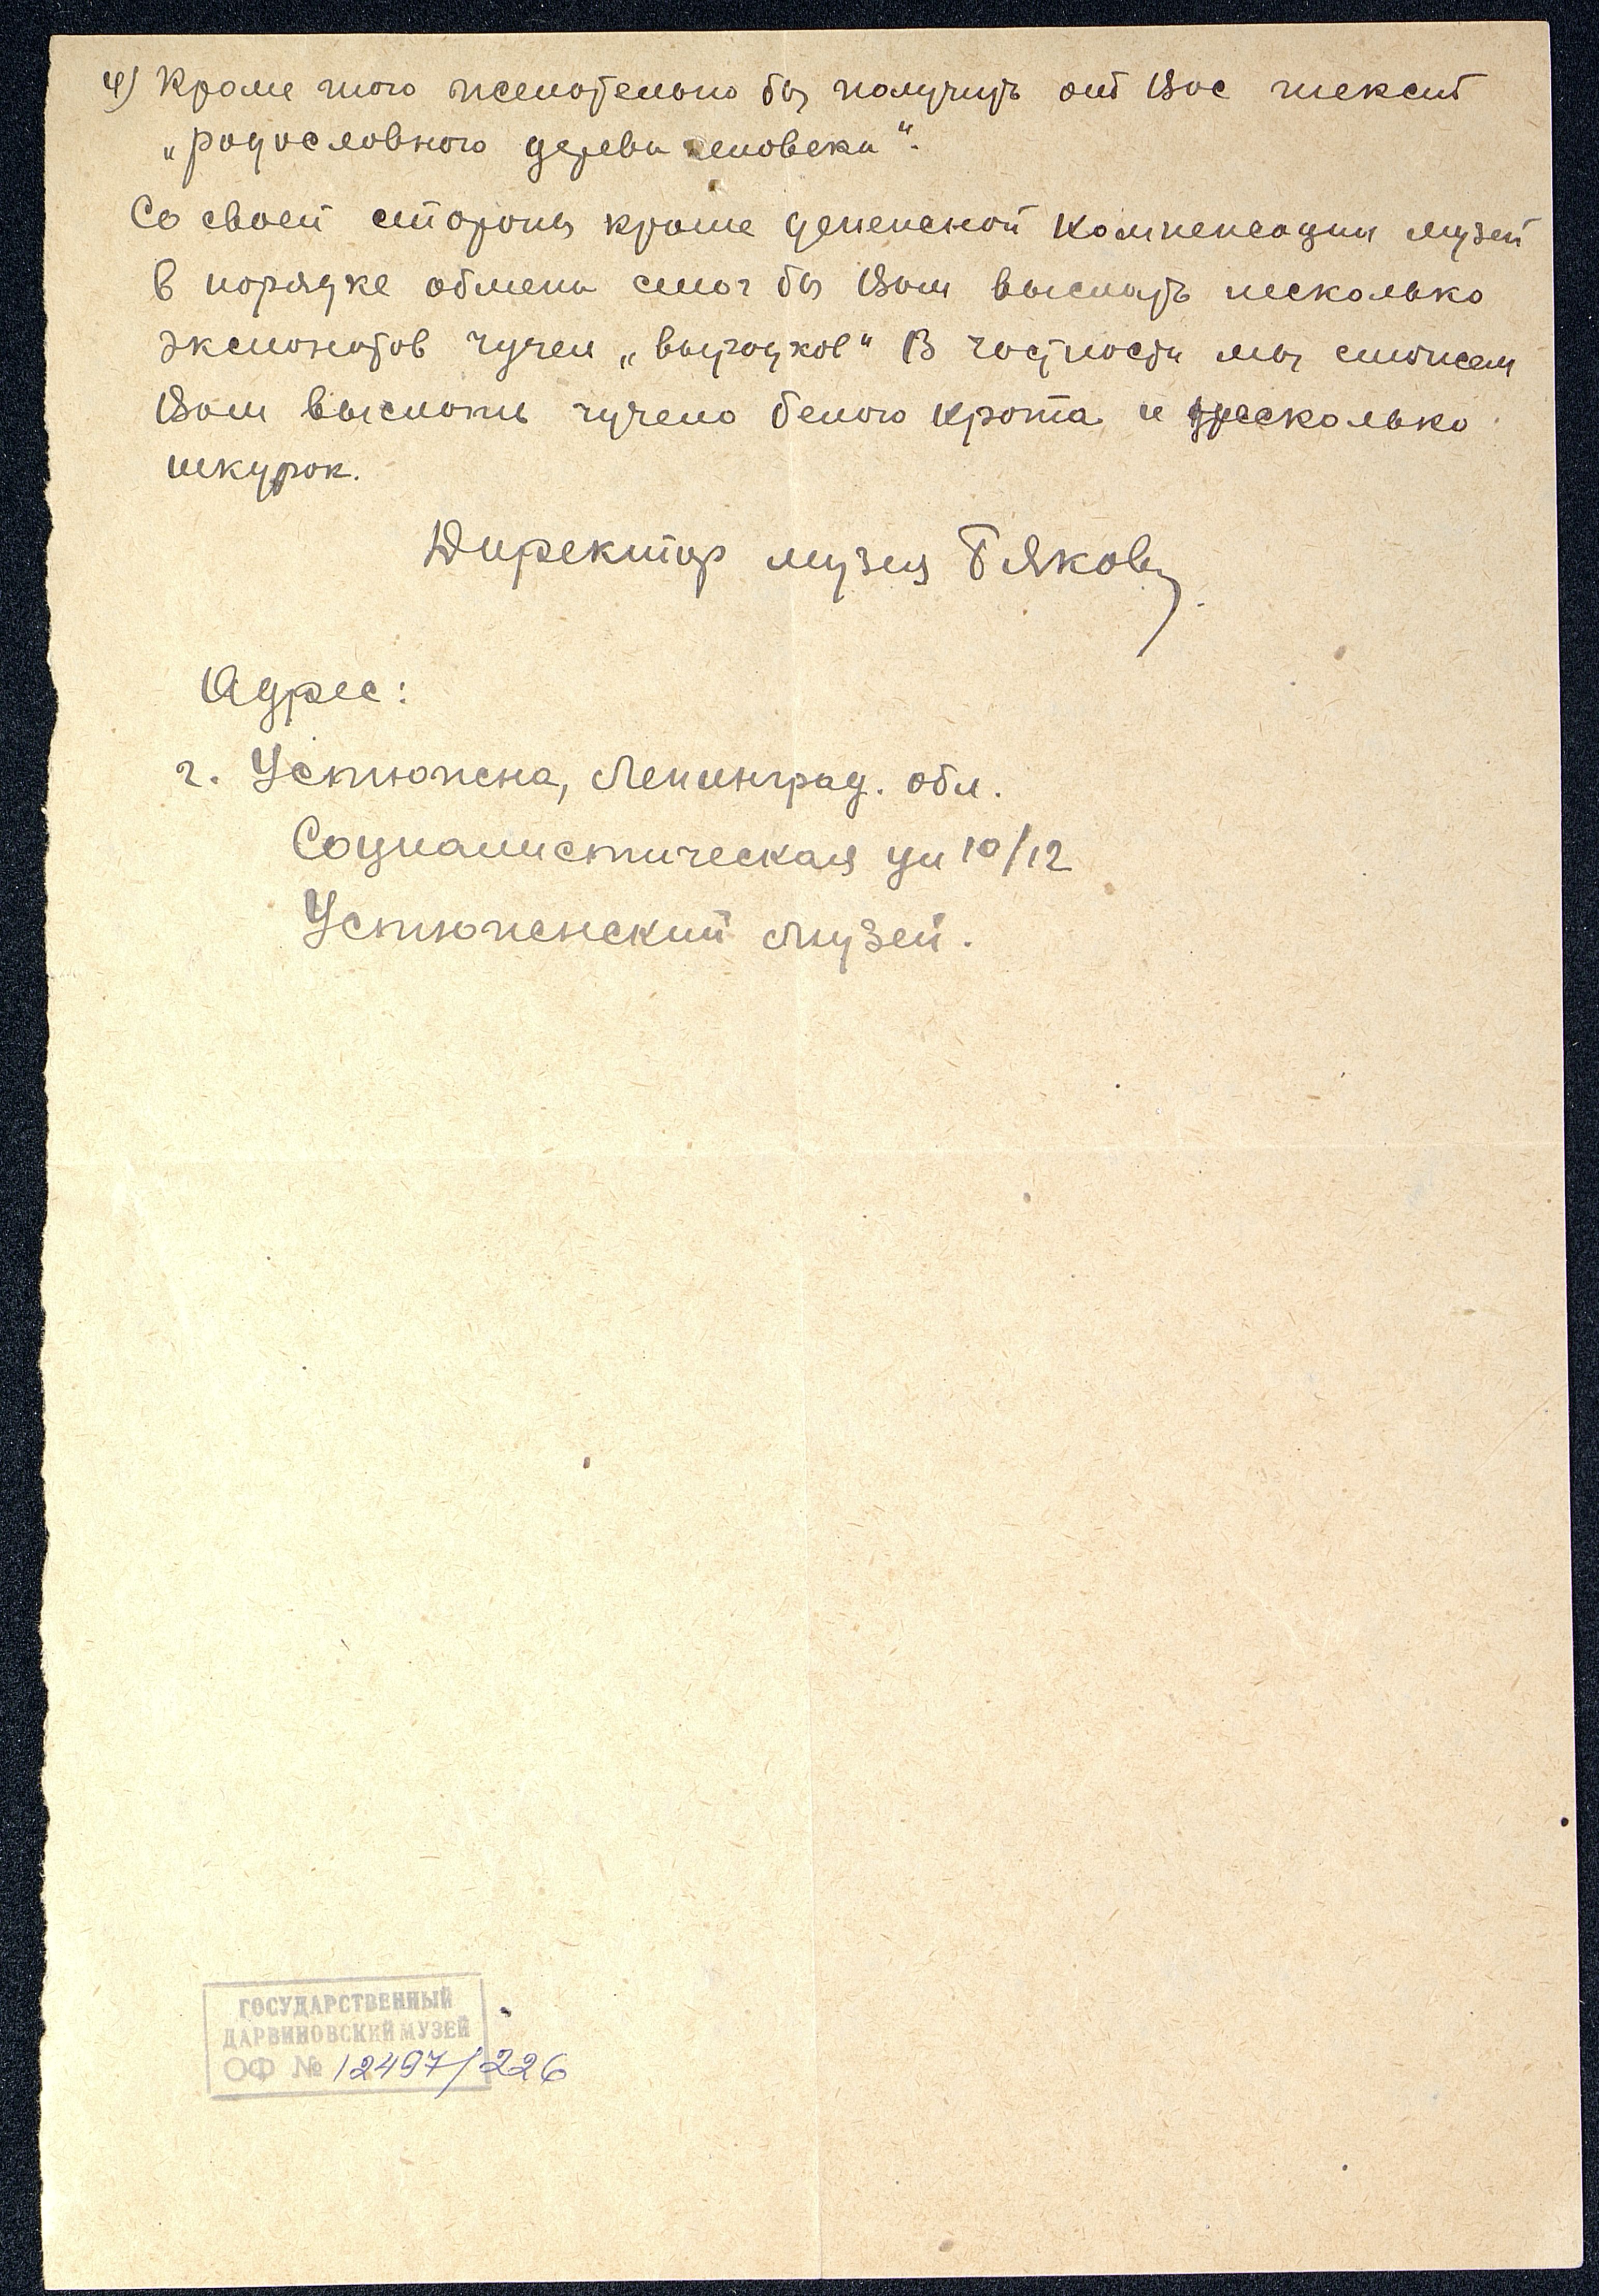 4) Кроме того желательно бы получить от Вас текст
„родословного дерева человека".
Со своей стороны кроме денежной компенсации музей
в порядке обмена смог бы Вам выслать несколько
экспонатов чучел „выродков" В частности мы сможем
Вам выслать чучело белого крота и несколько
шкурок.
Директор музея
Адрес:
г. Устюжна, Ленинград. обл.
Социалистическая ул 10/12
Устюженский музей.
ГОСУДАРСТВЕННЫЙ
ДАРВИНОВСКИЙ МУЗЕЙ
ОФ № 12497/226